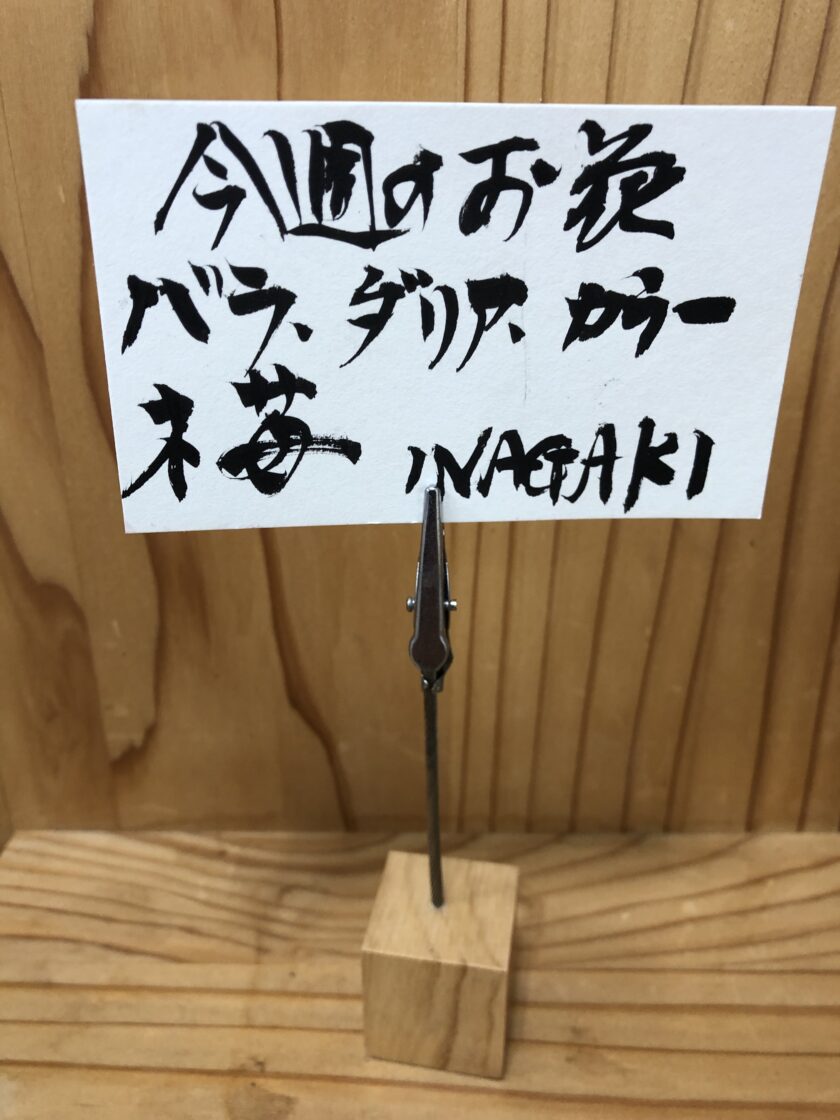 今週のお花
バラ、ダリア、カラー
梅 INAGAKI